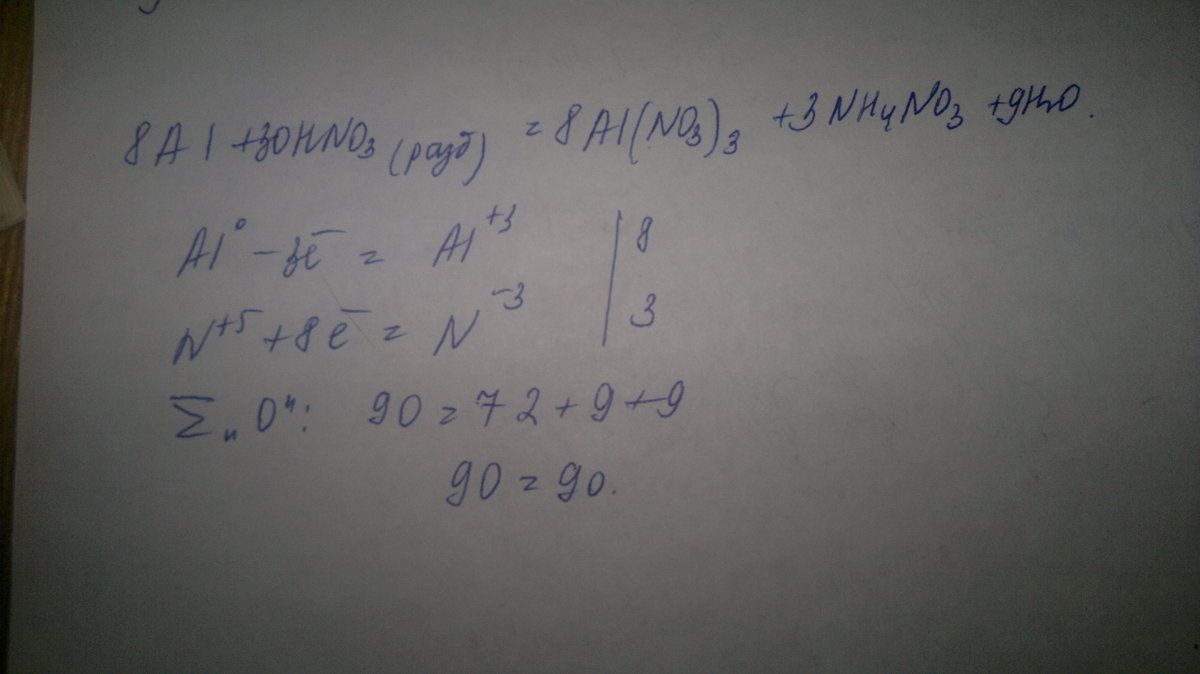 8Al +30HNO₃ (разб) = 8Al(NO₃)₃ +3NH₄NO₃ +9H₂O.
Al⁰ −3e⁻ = Al⁺³ | 8
N⁺⁵ +8e⁻ = N⁻³ | 3
Σ„O": 90 = 72 + 9 + 9
90 = 90.